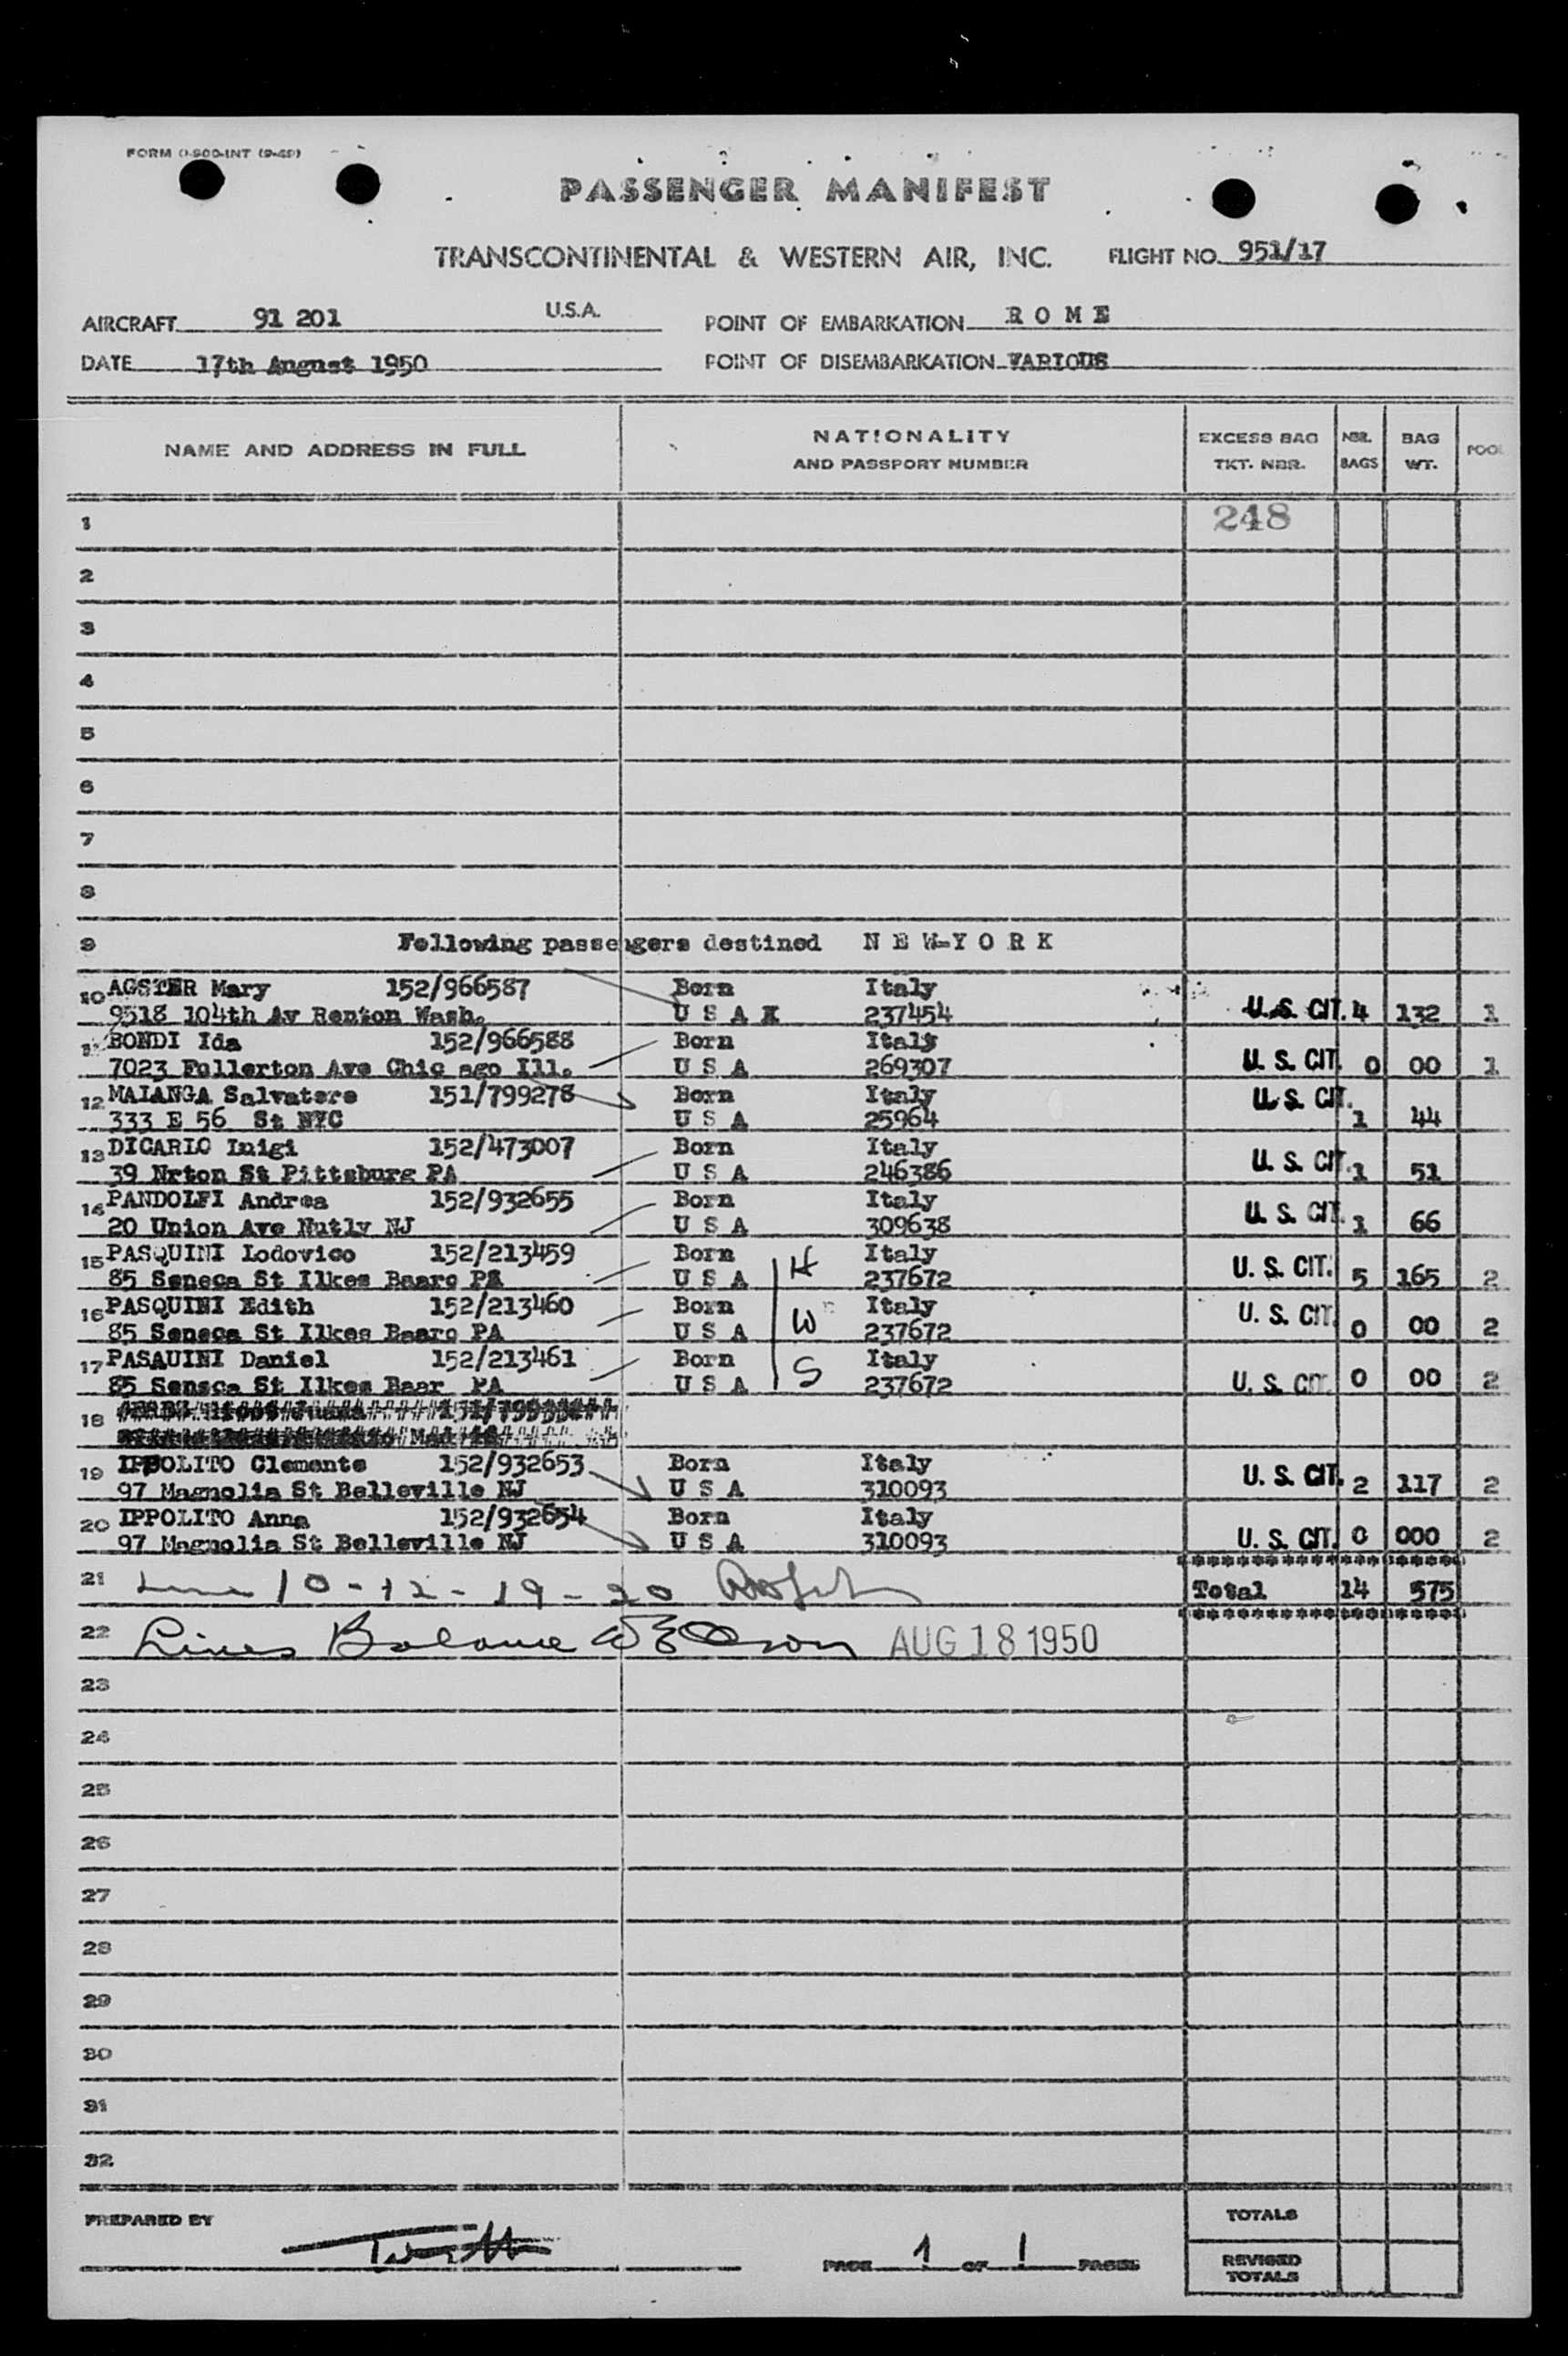 FORM O-900-INT (9-49)
PASSENGER MANIFEST
TRANSCONTINENTAL & WESTERN AIR, INC. FLIGHT NO. 951/17
AIRCRAFT 91 201 U.S.A. POINT OF EMBARKATION R O M E
DATE 17th August 1950 POINT OF DISEMBARKATION VARIOUS
NAME AND ADDRESS IN FULL NATIONALITY AND PASSPORT NUMBER EXCESS BAG TKT. NBR. NBR. BAGS BAG WT. POOL
1 248
2
3
4
5
6
7
8
9 Following passengers destined N E W-Y O R K
10 AGSTER Mary 152/966587 Born Italy
9518 104th Av Renton Wash. U S A X 237454 U. S. CIT. 4 132 1
BONDI Ida 152/966588 Born Italy
7023 Fullerton Ave Chic ago Ill. U S A 269307 U. S. CIT. 0 00 1
12 MALANGA Salvatore 151/799278 Born Italy
333 E 56 St NYC U S A 25964 U. S. CIT. 1 44
13 DICARLO Luigi 152/473007 Born Italy
39 Nrton St Pittsburg PA U S A 246386 U. S. CIT. 1 51
14 PANDOLFI Andrea 152/932655 Born Italy
20 Union Ave Nutly NJ U S A 309638 U. S. CIT. 1 66
15 PASQUINI Lodovico 152/213459 Born Italy
85 Seneca St Ilkes Baarc PA U S A H 237672 U. S. CIT. 5 165 2
16 PASQUINI Edith 152/213460 Born Italy
85 Seneca St Ilkes Baarc PA U S A W 237672 U. S. CIT. 0 00 2
17 PASAUINI Daniel 152/213461 Born Italy
85 Sensca St Ilkes Baar PA U S A S 237672 U. S. CIT 0 00 2
18
19 IPPOLITO Clemente 152/932653 Born Italy
97 Magnolia St Belleville NJ U S A 310093 U. S. CIT. 2 117 2
20 IPPOLITO Anna 152/932654 Born Italy
97 Magnolia St Belleville NJ U S A 310093 U. S. CIT. 0 000 2
21 10-12-19-20 Total 14 575
22 Lines Balance AUG 18 1950
23
24
25
26
27
28
29
30
31
32
PREPARED BY TOTALS
PAGE 1 OF 1 PAGES REVISED TOTALS